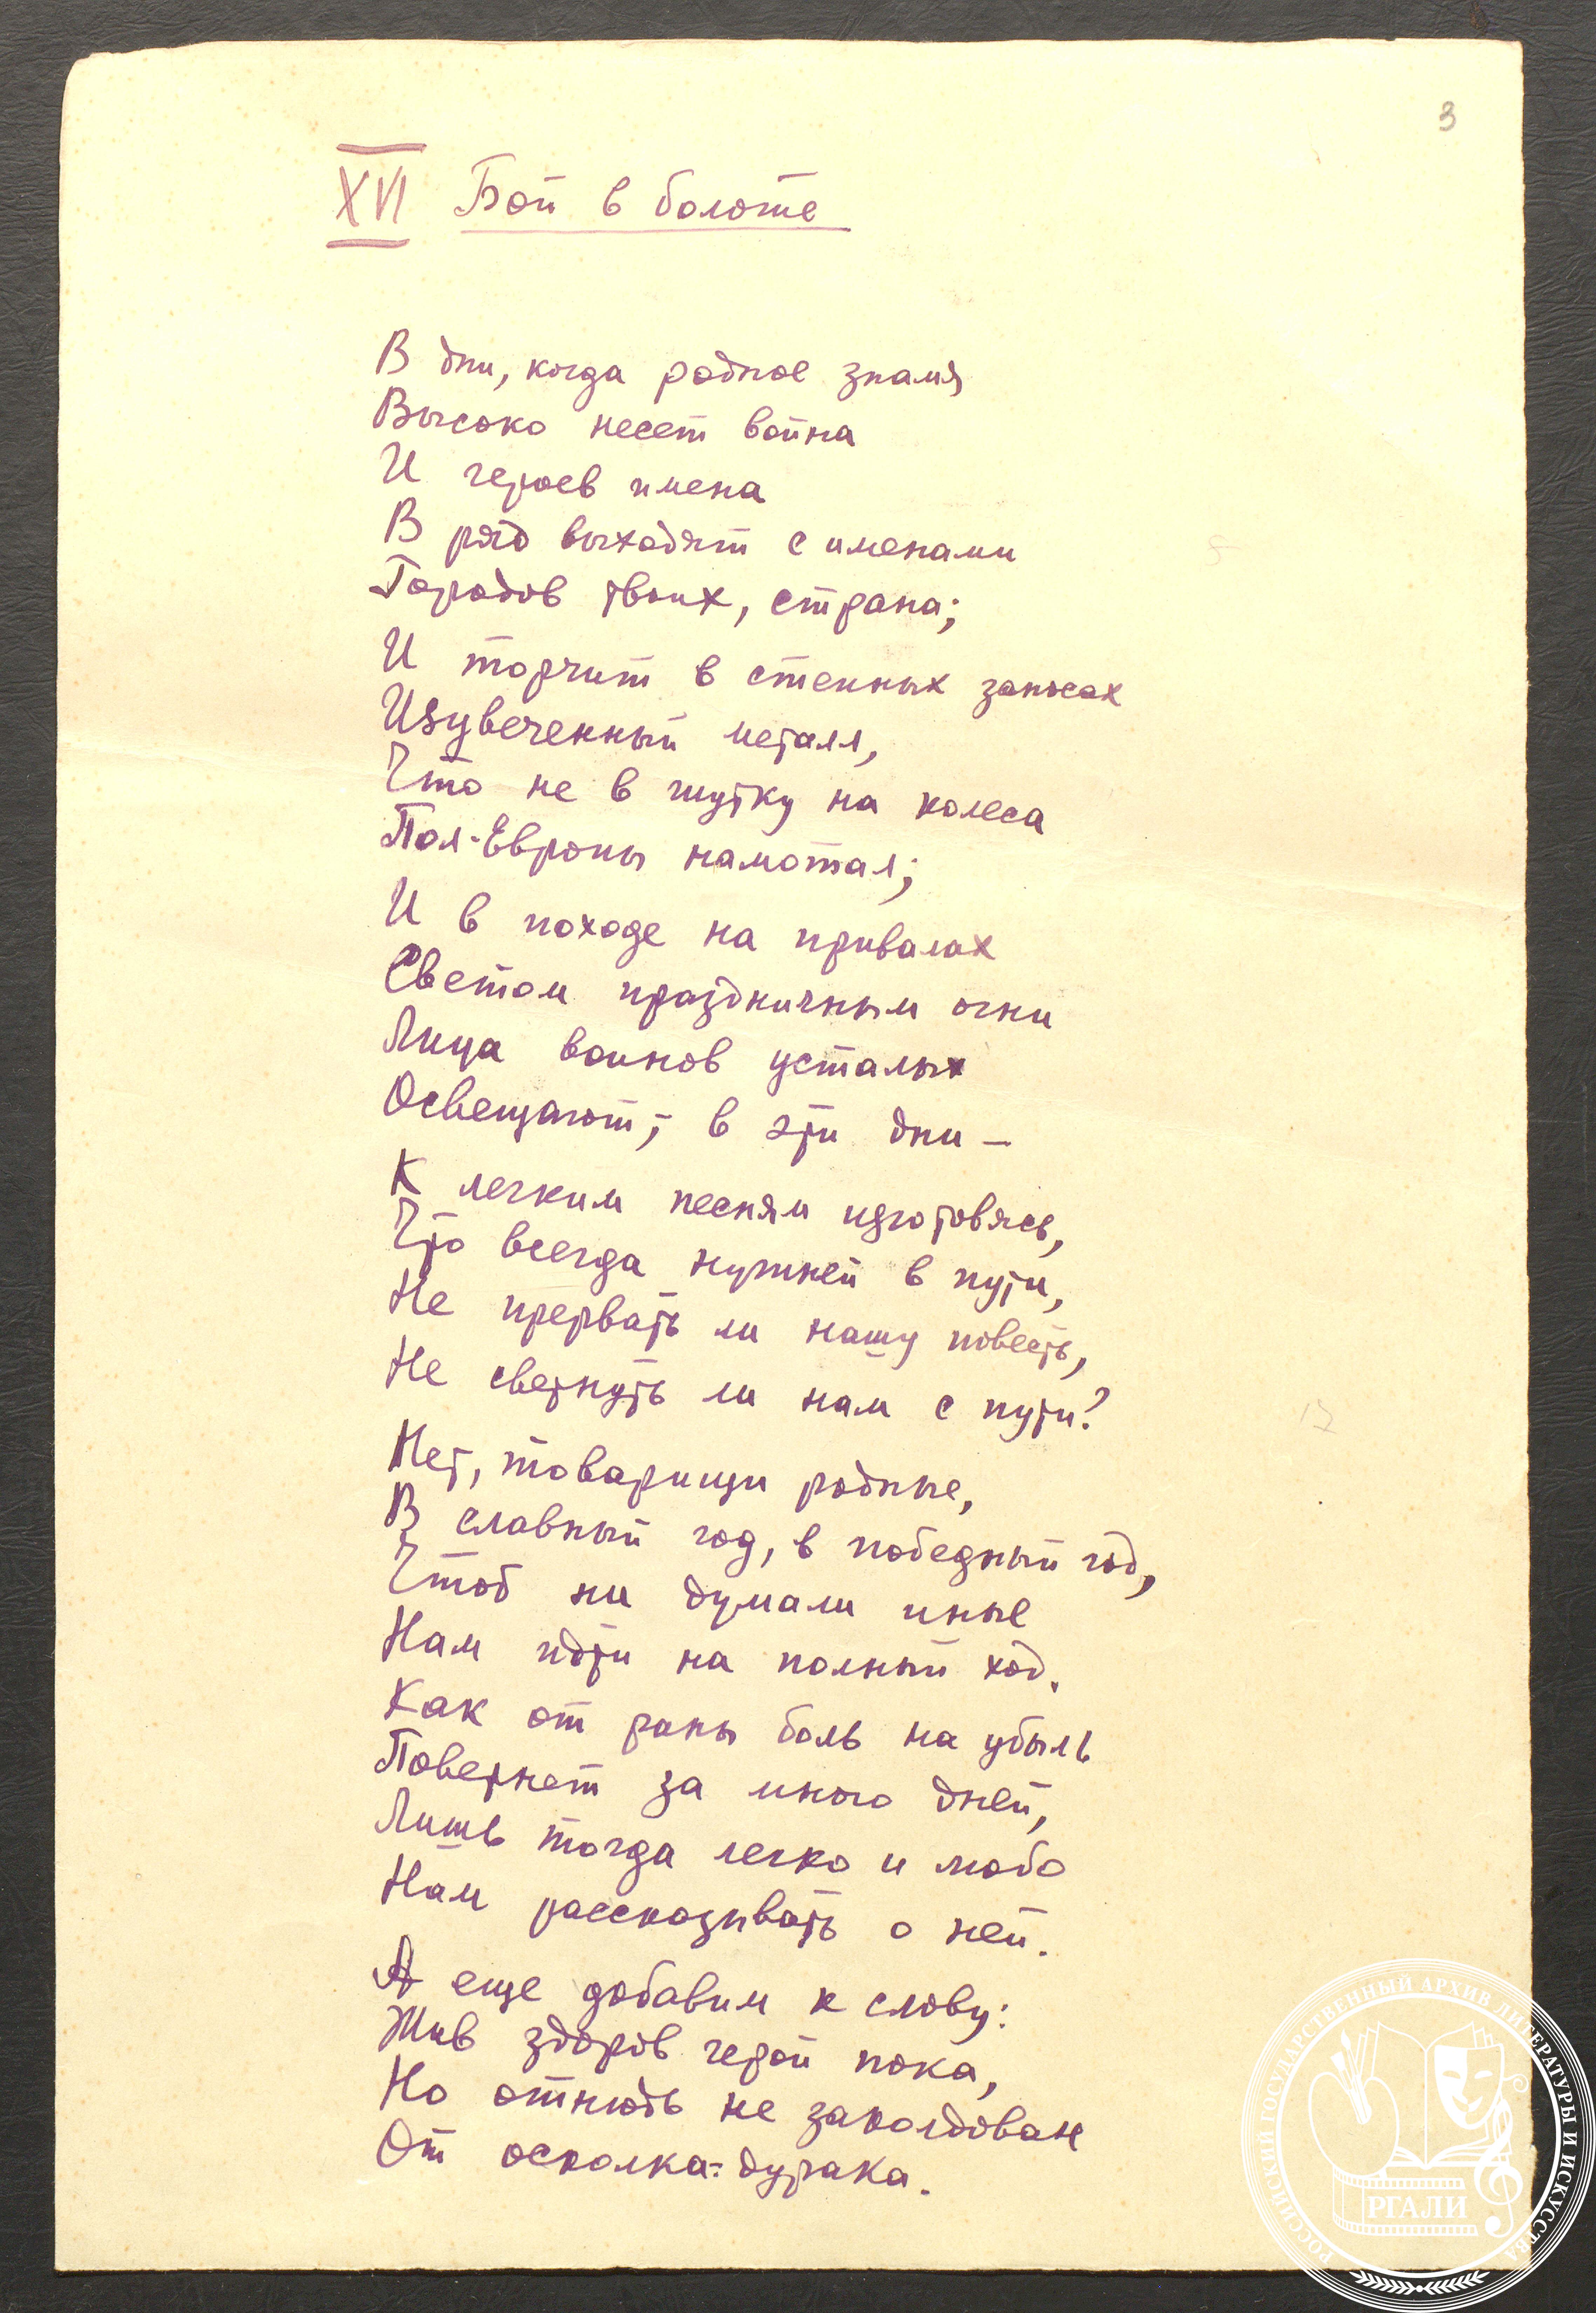 3
XVI Бой в болоте
В дни, когда родное знамя
Высоко несет война
И героев имена
В ряд выходят с именами
Городов твоих, страна;
И торчит в стенных запасах
Изувеченный металл,
Что не в шутку на колеса
Пол-Европы намотал;
И в походе на привалах
Светом праздничным огни
Лица воинов усталых
Освещают; в эти дни –
К легким песням изготовясь,
Что всегда нужней в пути,
Не прервать ли нашу повесть,
Не свернуть ли нам с пути?
Нет, товарищи родные,
В славный год, в победный год,
Чтоб ни думали иные
Нам идти на полный ход.
Как от раны боль на убыль
Повернет за много дней,
Лишь тогда легко и любо
Нам рассказывать о ней.
А еще добавим к слову:
Жив здоров герой пока,
Но отнюдь не заколдован
От осколка-дурака.
РОССИЙСКИЙ ГОСУДАРСТВЕННЫЙ АРХИВ ЛИТЕРАТУРЫ И ИСКУССТВА
РГАЛИ